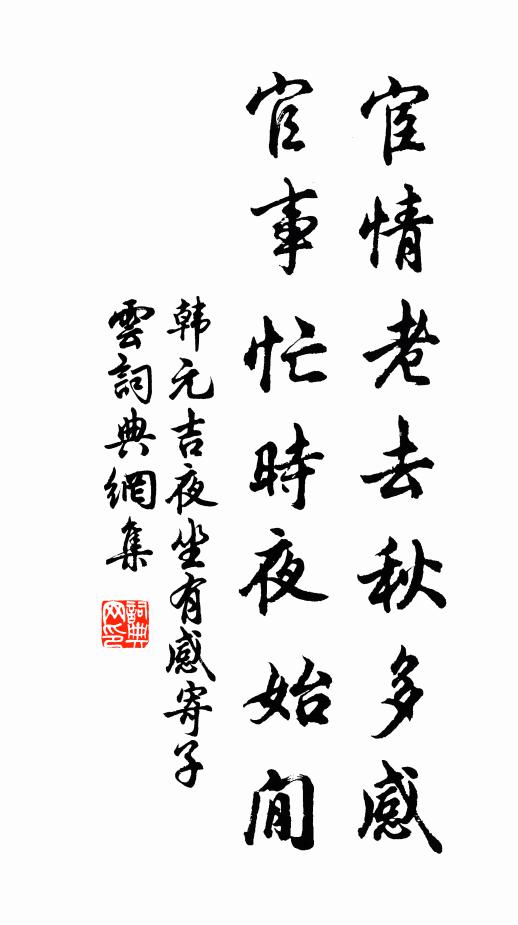 宦情老去秋多感
官事忙時夜始閒
韩元吉夜坐有感寄子
雲詞典網集
詞典网印